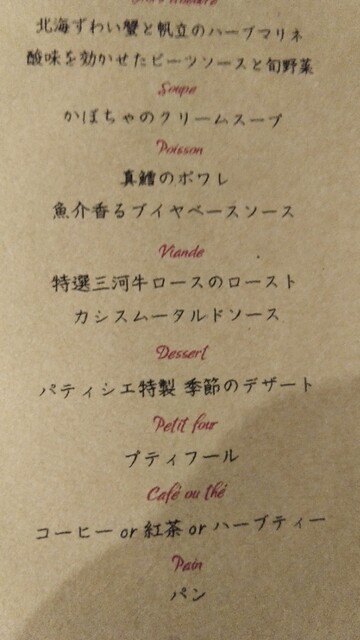 北海ずわい蟹と帆立のハーブマリネ
酸味を効かせたビーツソースと旬野菜
Soupe
かぼちゃのクリームスープ
Poisson
真鱈のポワレ
魚介香るブイヤベースソース
Viande
特選三河牛ロースのロースト
カシスムータルドソース
Dessert
パティシエ特製 季節のデザート
Petit four
プティフール
Café ou thé
コーヒー or 紅茶 or ハーブティー
Pain
パン